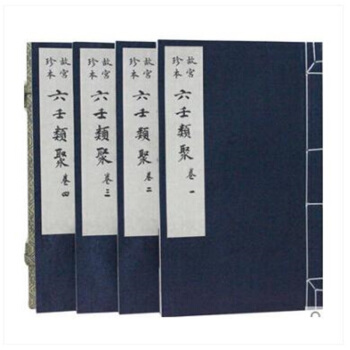 故宮珍本
六壬類聚
卷四
故宮珍本
六壬類聚
卷三
故宮珍本
六壬類聚
卷二
故宮珍本
六壬類聚
卷一